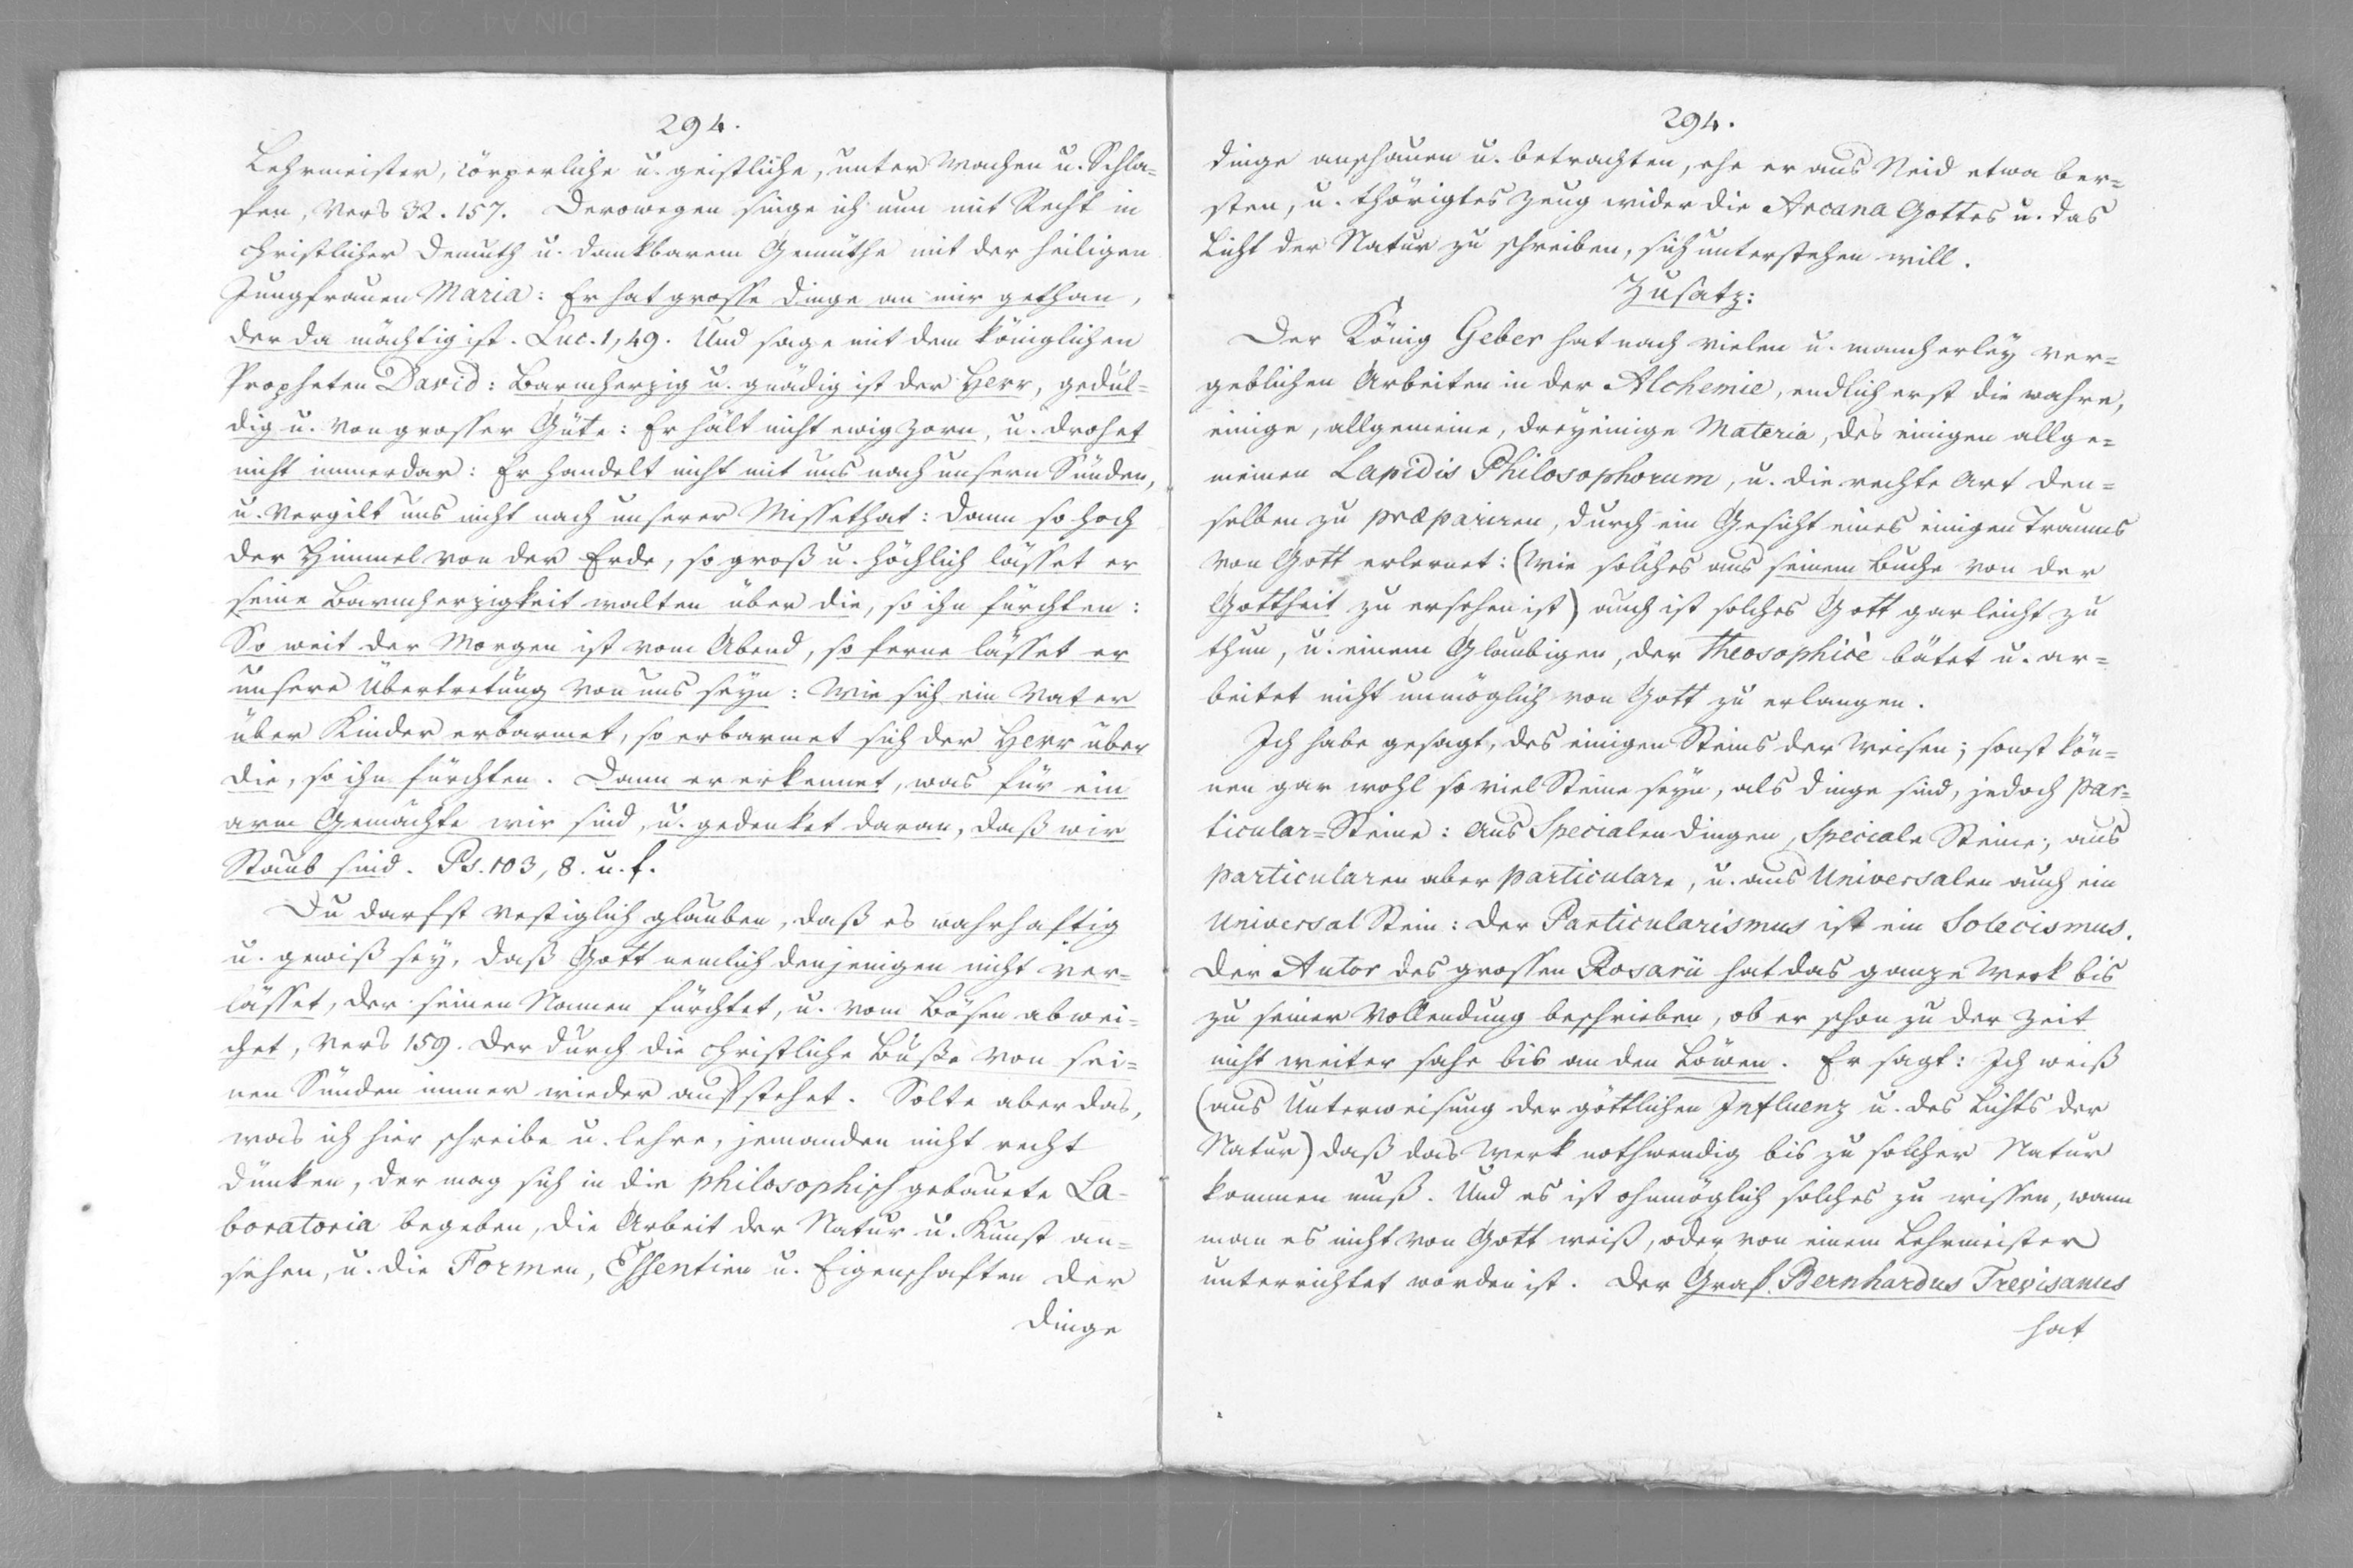 294.
Lehrmeister, cörperliche u. geistliche, unter Wachen u. Schla-
fen, Vers 32. 157. Derowegen singe ich nun mit Recht in
christlicher Demuth u. dankbarem Gemüthe mit der heiligen
Jungfrauen Maria: Er hat grosse Dinge an mir gethan,
der da mächtig ist. Luc. 1, 49. Und sage mit dem königlichen
Propheten David: Barmherzig u. gnädig ist der Herr, gedul=
dig u. von grosser Güte: Er hält nicht ewig Zorn, u. drohet
nicht immerdar: Er handelt nicht mit uns nach unsern Sünden,
u. vergilt uns nicht nach unserer Missethat: Dann so hoch
der Himmel von der Erde, so groß u. höchlich lässet er
seine Barmherzigkeit walten über die, so ihn fürchten:
So weit der Morgen ist vom Abend, so ferne lässet er
unsere Übertretung von uns seyn: Wie sich ein Vater
über Kinder erbarmet, so erbarmet sich der Herr über
die, so ihn fürchten. Dann er erkennet, was für ein
arm Gemächte wir sind, u. gedenket daran, daß wir
Staub sind. Ps. 103, 8. u. f.
Du darfst vestiglich glauben, daß es wahrhaftig
u. gewiß sey, daß Gott nemlich denjenigen nicht ver=
lässet, der seinen Namen fürchtet, u. vom Bösen abwei=
chet, Vers 159. der durch die christliche Buße von sei=
nen Sünden immer wieder aufstehet. Solte aber das,
was ich hier schreibe u. lehre, jemanden nicht recht
dünken, der mag sich in die philosophisch gebauete La-
boratoria begeben, die Arbeit der Natur u. Kunst an=
sehen, u. die Formen, Essentien u. Eigenschaften der
Dinge
294.
Dinge anschauen u. betrachten, ehe er aus Neid etwa ber=
sten, u. thörigtes Zeug wider die Arcana Gottes u. das
Licht der Natur zu schreiben, sich unterstehen will.
Zusatz:
Der König Geber hat nach vielen u. mancherley ver=
geblichen Arbeiten in der Alchemie, endlich erst die wahre,
einige, allgemeine, dreyeinige Materia, des einigen allge=
meinen Lapidis Philosophorum, u. die rechte Art den=
selben zu præpariren, durch ein Gesicht eines einigen Traums
von Gott erlernet: (wie solches aus seinem Buche von der
Gottheit zu ersehen ist) auch ist solches Gott gar leicht zu
thun, u. einem Glaubigen, der Theosophicè bätet u. ar=
beitet nicht unmöglich von Gott zu erlangen.
Ich habe gesagt, des einigen Steins der Weisen; sonst kön=
nen gar wohl so viel Steine seyn, als Dinge sind, jedoch Par=
ticular=Steine: aus Specialen Dingen, Speciale Steine; aus
Particularen aber Particulare, u. aus Universalen auch ein
Universal Stein: der Particularismus ist ein Solecismus.
Der Autor des grossen Rosarii hat das ganze Werk bis
zu seiner Vollendung beschrieben, ob er schon zu der Zeit
nicht weiter sahe bis an den Löwen. Er sagt: Ich weiß
(aus Unterweisung der göttlichen Influenz u. des Lichts der
Natur) daß das Werk nothwendig bis zu solcher Natur
kommen muß. Und es ist ohnmöglich solches zu wissen, wann
man es nicht von Gott weiß, oder von einem Lehrmeister
unterrichtet worden ist. Der Graf Bernhardus Trevisanus
hat